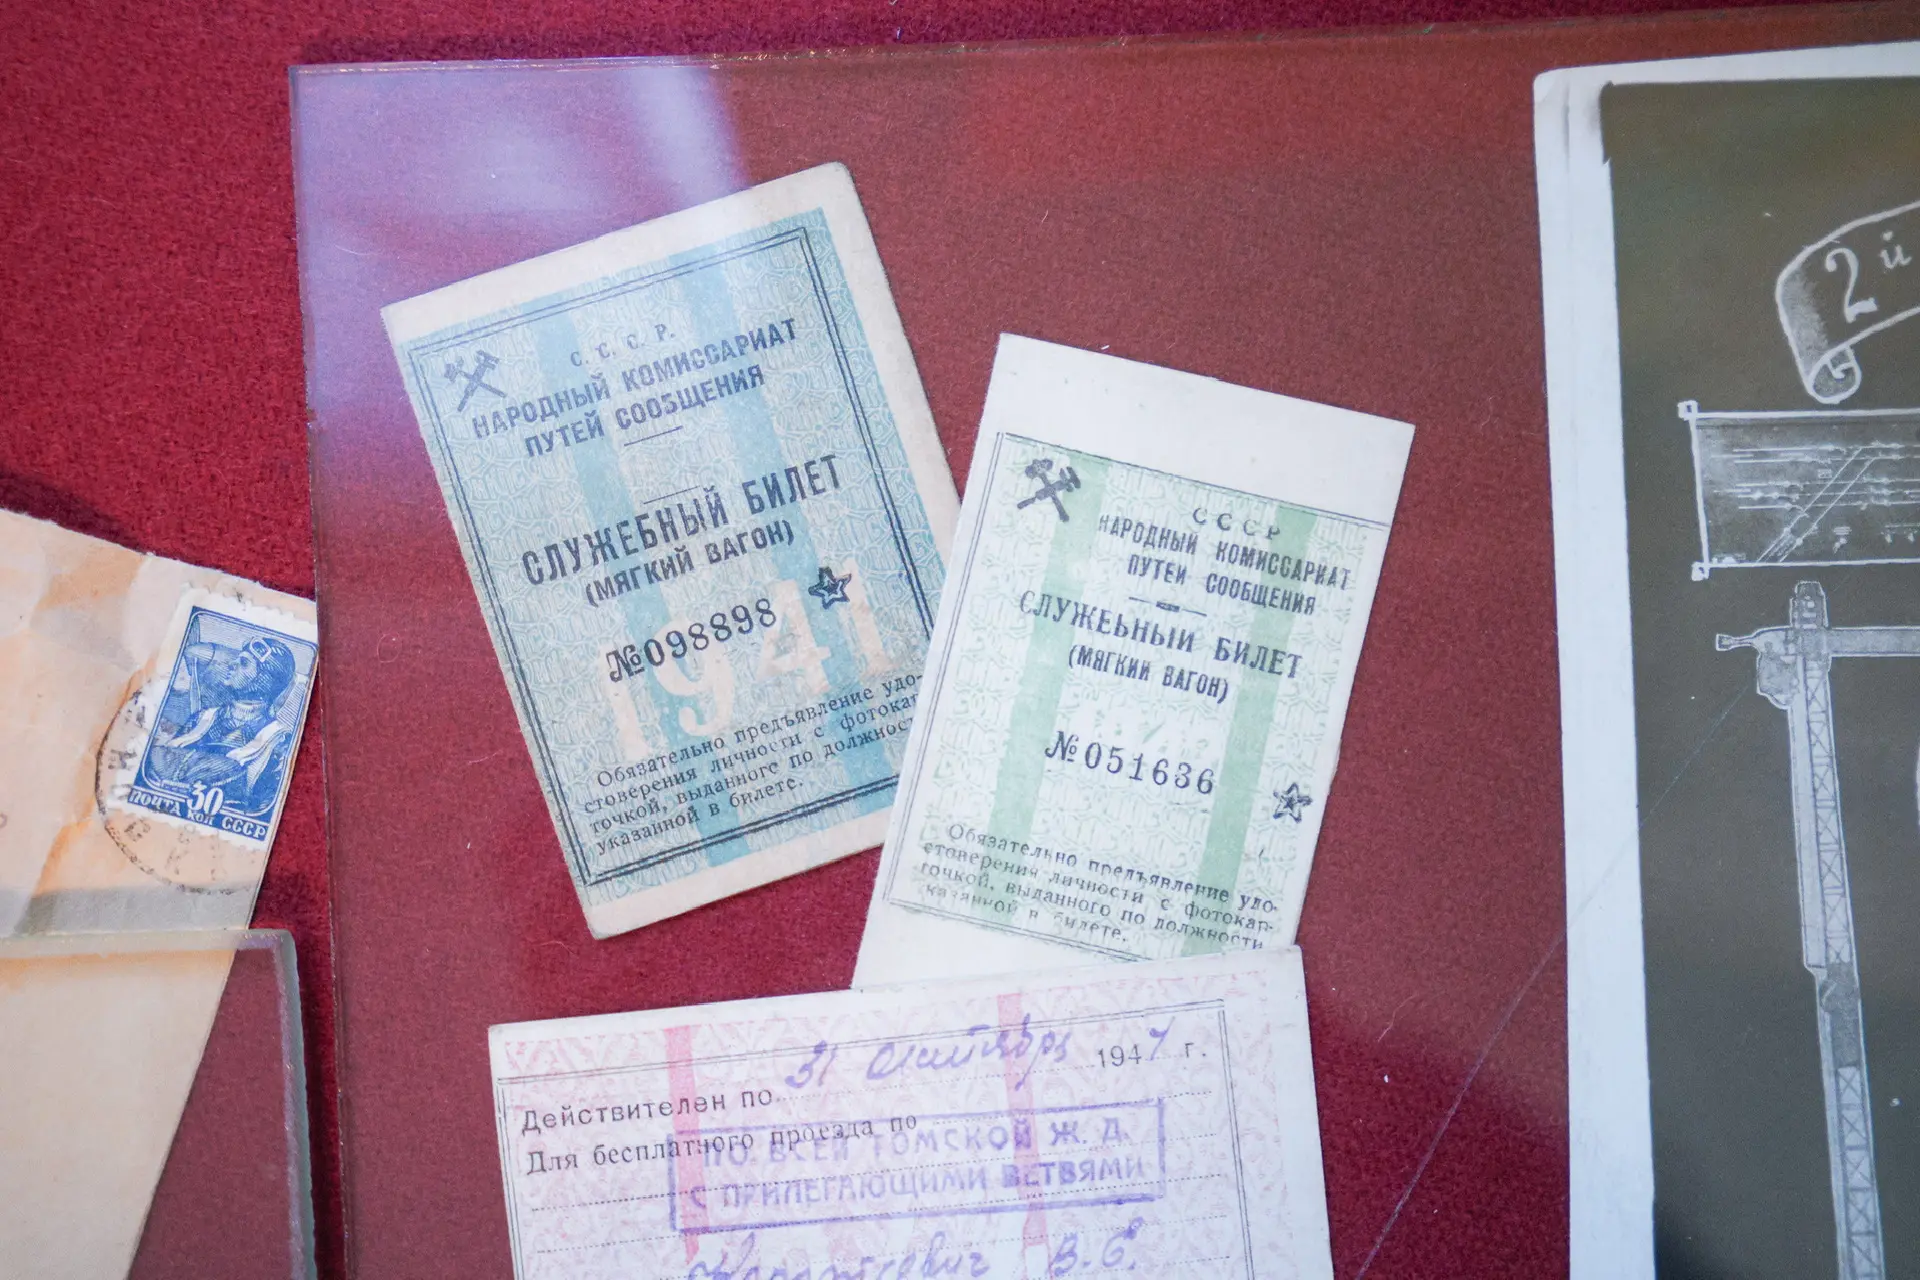 С. С. С. Р.
НАРОДНЫЙ КОМИССАРИАТ
ПУТЕЙ СООБЩЕНИЯ
СЛУЖЕБНЫЙ БИЛЕТ
(МЯГКИЙ ВАГОН)
№098898
1941
Обязательно предъявление удо-
стоверения личности с фотокар
точкой, выданного по должност
указанной в билете.
СССР
НАРОДНЫЙ КОМИССАРИАТ
ПУТЕЙ СООБЩЕНИЯ
СЛУЖЕБНЫЙ БИЛЕТ
(МЯГКИЙ ВАГОН)
№051636
Обязательно предъявление удо-
стоверения личности с фотокар-
точкой, выданного по должности
указанной в билете.
Действителен по 31 октября 1947 г.
Для бесплатного проезда по
ПО ВСЕЙ ТОМСКОЙ Ж. Д.
С ПРИЛЕГАЮЩИМИ ВЕТВЯМИ
В. С.
ПОЧТА 30 КОП СССР
2й